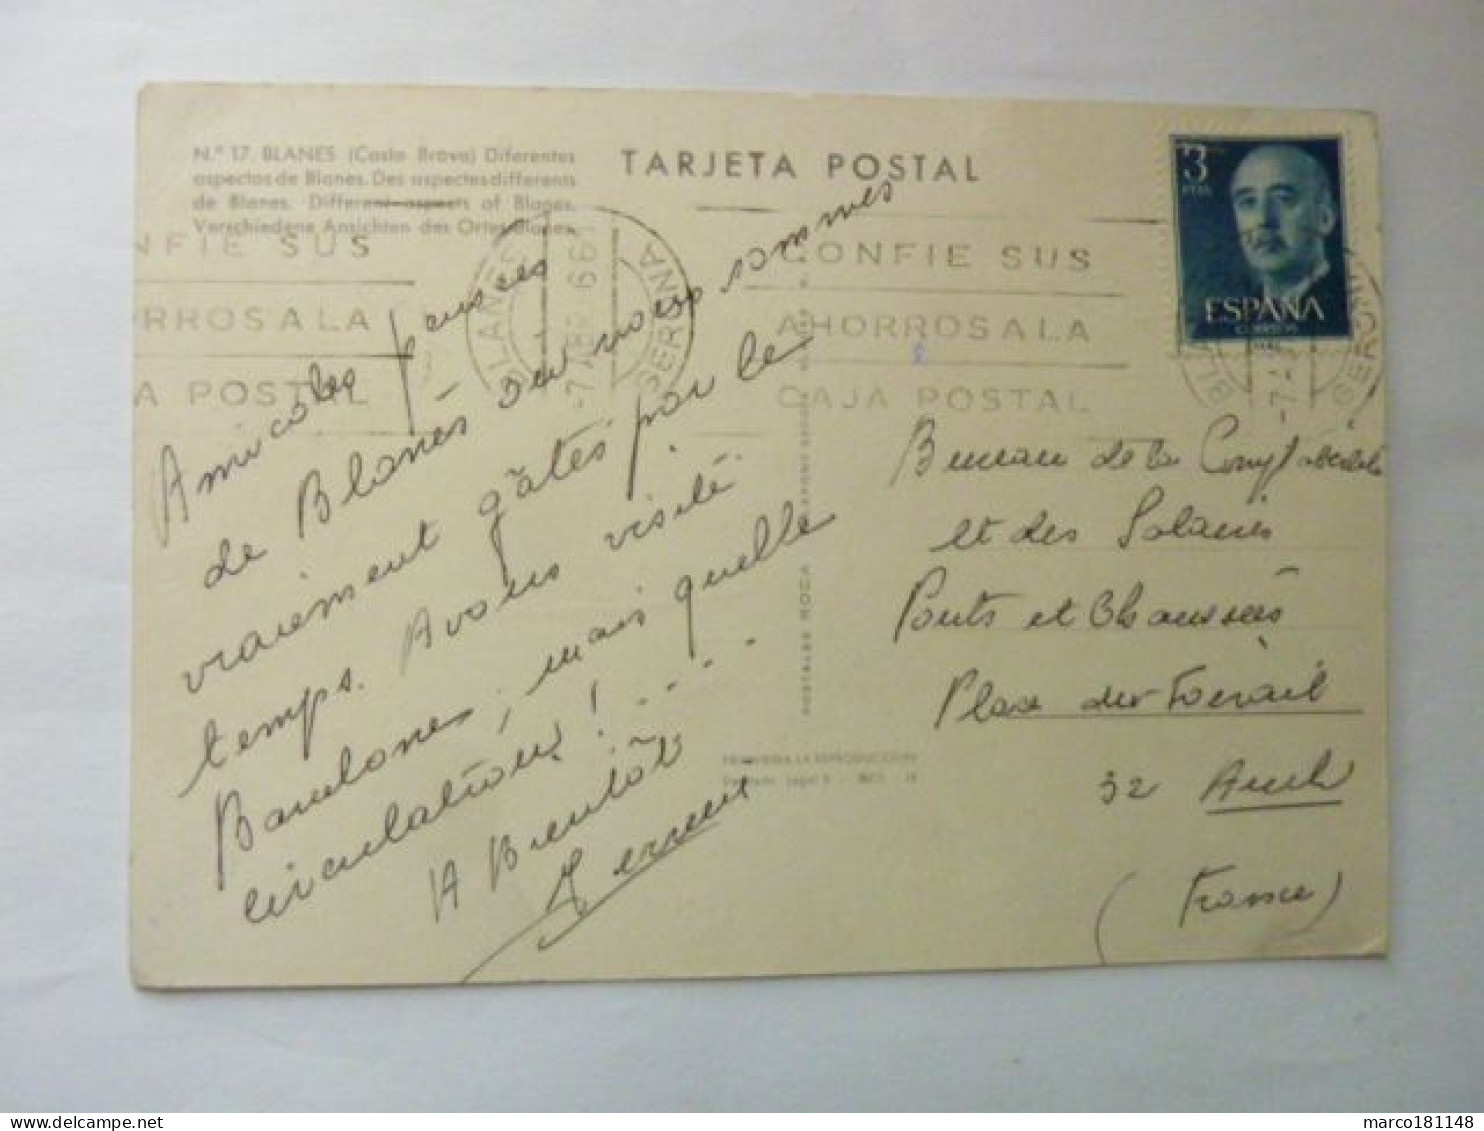 N.º 17. BLANES (Costa Brava) Diferentes
aspectos de Blanes. Des aspects differents
de Blanes. Different aspects of Blanes.
Verschiedene Ansichten des Ortes Blanes.
TARJETA POSTAL
3
PTAS
ESPAÑA
CORREOS
NFIE SUS
RROS A LA
A POSTAL
BLANES
GERONA
CONFIE SUS
AHORROS A LA
CAJA POSTAL
Amicales pensées
de Blanès où nous sommes
vraiment gâtés par le
temps. Avons visité
Barcelone, mais quelle
circulation! . . . .
A Bientôt
Bureau de la Comptabilité
et des Salaires
Ponts et Chaussées
Place du Foirail
32 Auch
(France)
PROHIBIDA LA REPRODUCCION
marco181148